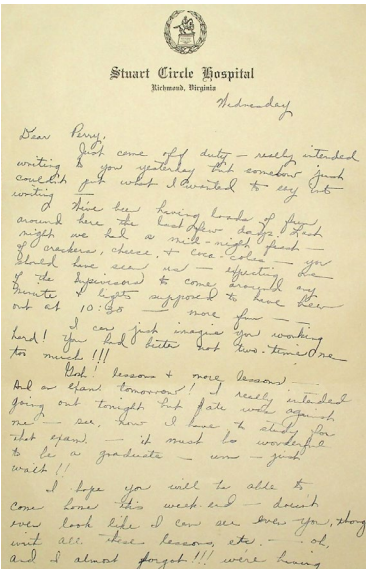 Stuart Circle Hospital
Richmond, Virginia
Wednesday
Dear Perry,
Just came off duty – really intended
writing to you yesterday but somehow just
couldn't put what I wanted to say into
writing.
I've been having loads of fun
around here the last few days. Last
night we had a mid-night feast –
of crackers, cheese, + coca-colas – you
should have seen us – expecting one
of the supervisors to come around any
minute + lights supposed to have been
out at 10:30 – more fun –
I can just imagine you working
hard! You had better not two-time me
too much!!!
Gosh! lessons + more lessons –
And a exam tomorrow! I really intended
going out tonight but fate was against
me – see, now I have to study for
that exam – it must be wonderful
to be a graduate – um – just
wait!!
I hope you will be able to
come home this week-end – doesn't
even look like I can see even you, though
with all these lessons, etc. – oh,
and I almost forgot!!! we're having